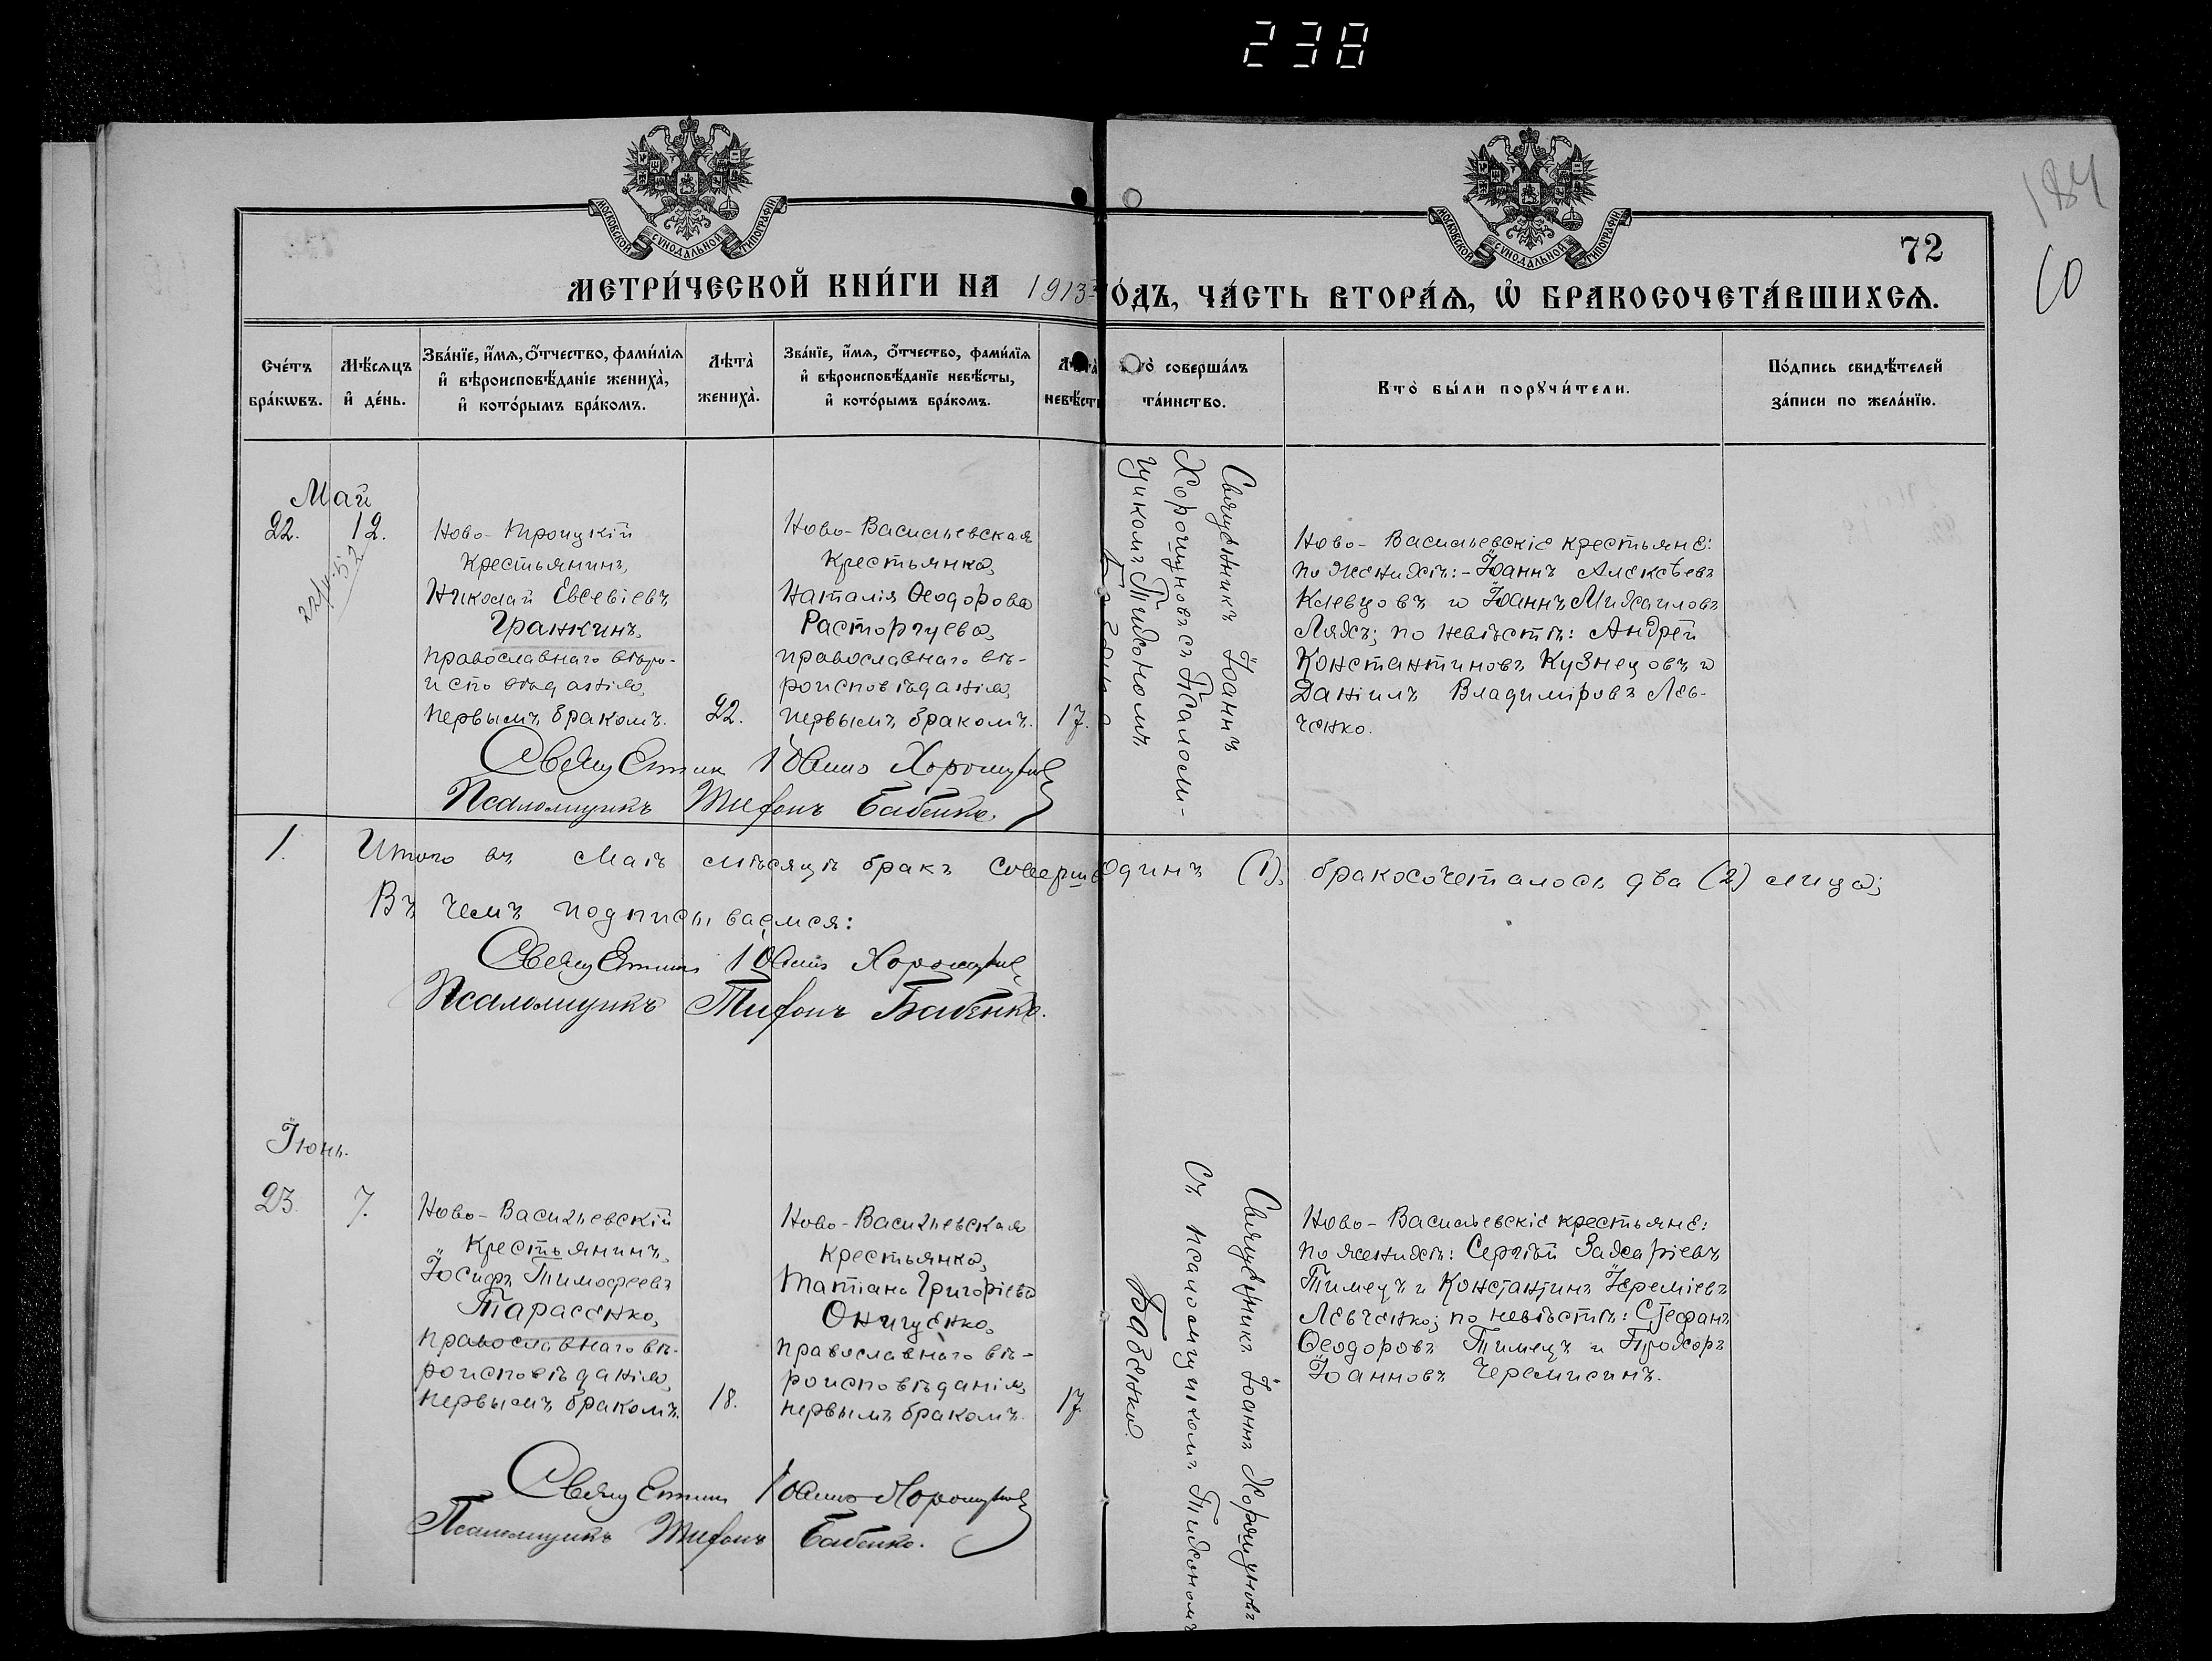 238
МОСКОВСКОЙ СУНОДАЛЬНОЙ ТИПОГРАФІИ
МОСКОВСКОЙ СУНОДАЛЬНОЙ ТИПОГРАФІИ
184
72
МЕТРИ́ЧЕСКОЙ КНИ́ГИ НА 1913 ГО́ДЪ, ЧА́СТЬ ВТОРА́Ѧ, Ѡ҆ БРАКОСОЧЕТА́ВШИХСѦ.
Сче́тъ бра́кѡвъ.
Мѣ́сѧцъ и҆ де́нь.
Зва́нїе, и҆́мѧ, ѻ҆́тчество, фами́лїѧ и҆ вѣроисповѣ́данїе жениха̀, и҆ кото́рымъ бра́комъ.
Лѣта̀ жениха̀.
Зва́нїе, и҆́мѧ, ѻ҆́тчество, фами́лїѧ и҆ вѣроисповѣ́данїе невѣ́сты, и҆ кото́рымъ бра́комъ.
Лѣта̀ невѣ́сты
Кто̀ соверша́лъ та́инство.
Кто̀ бы́ли порꙋчи́тели.
По́дпись свидѣ́телей за́писи по жела́нїю.
Май
22.
12.
Ново-Троицкій
крестьянинъ,
Николай Евсевіевъ
Гранкинъ,
православнаго вѣро-
исповѣданія,
первымъ бракомъ.
22.
Ново-Васильевская
крестьянка,
Наталія Ѳеодорова
Расторгуева,
православнаго вѣ-
роисповѣданія,
первымъ бракомъ.
17.
Священникъ Іоаннъ
Хорошуновъ съ Псаломщи-
комъ Тихономъ
Бабенко
Ново-Васильевскіе крестьяне:
по женихѣ:- Іоаннъ Алексѣевъ
Клевцовъ и Іоаннъ Михаиловъ
Ляхъ; по невѣстѣ: Андрей
Константиновъ Кузнецовъ и
Даніилъ Владиміровъ Лев-
ченко.
Священникъ Іоаннъ Хорошуновъ
Псаломщикъ Тихонъ Бабенко.
1.
Итого въ Маѣ мѣсяцѣ бракъ соверш одинъ (1), бракосочеталось два (2) лица;
Въ чемъ подписываемся:
Священникъ Іоаннъ Хорошуновъ
Псаломщикъ Тихонъ Бабенко.
Іюнь.
23.
7.
Ново-Васильевскій
крестьянинъ,
Іосифъ Тимофеевъ
Тарасенко,
православнаго вѣ-
роисповѣданія,
первымъ бракомъ.
18.
Ново-Васильевская
крестьянка,
Татіана Григоріева
Онищенко,
православнаго вѣ-
роисповѣданія,
первымъ бракомъ.
17
Священникъ Іоаннъ Хорошуновъ
съ псаломщикомъ Тихономъ
Бабенко.
Ново-Васильевскіе крестьяне:
по женихѣ: Сергѣй Захаріевъ
Тимецъ и Константинъ Іереміевъ
Левченко; по невѣстѣ: Стефанъ
Ѳеодоровъ Тимецъ и Прохоръ
Іоанновъ Черемисинъ.
Священникъ Іоаннъ Хорошуновъ
Псаломщикъ Тихонъ Бабенко.